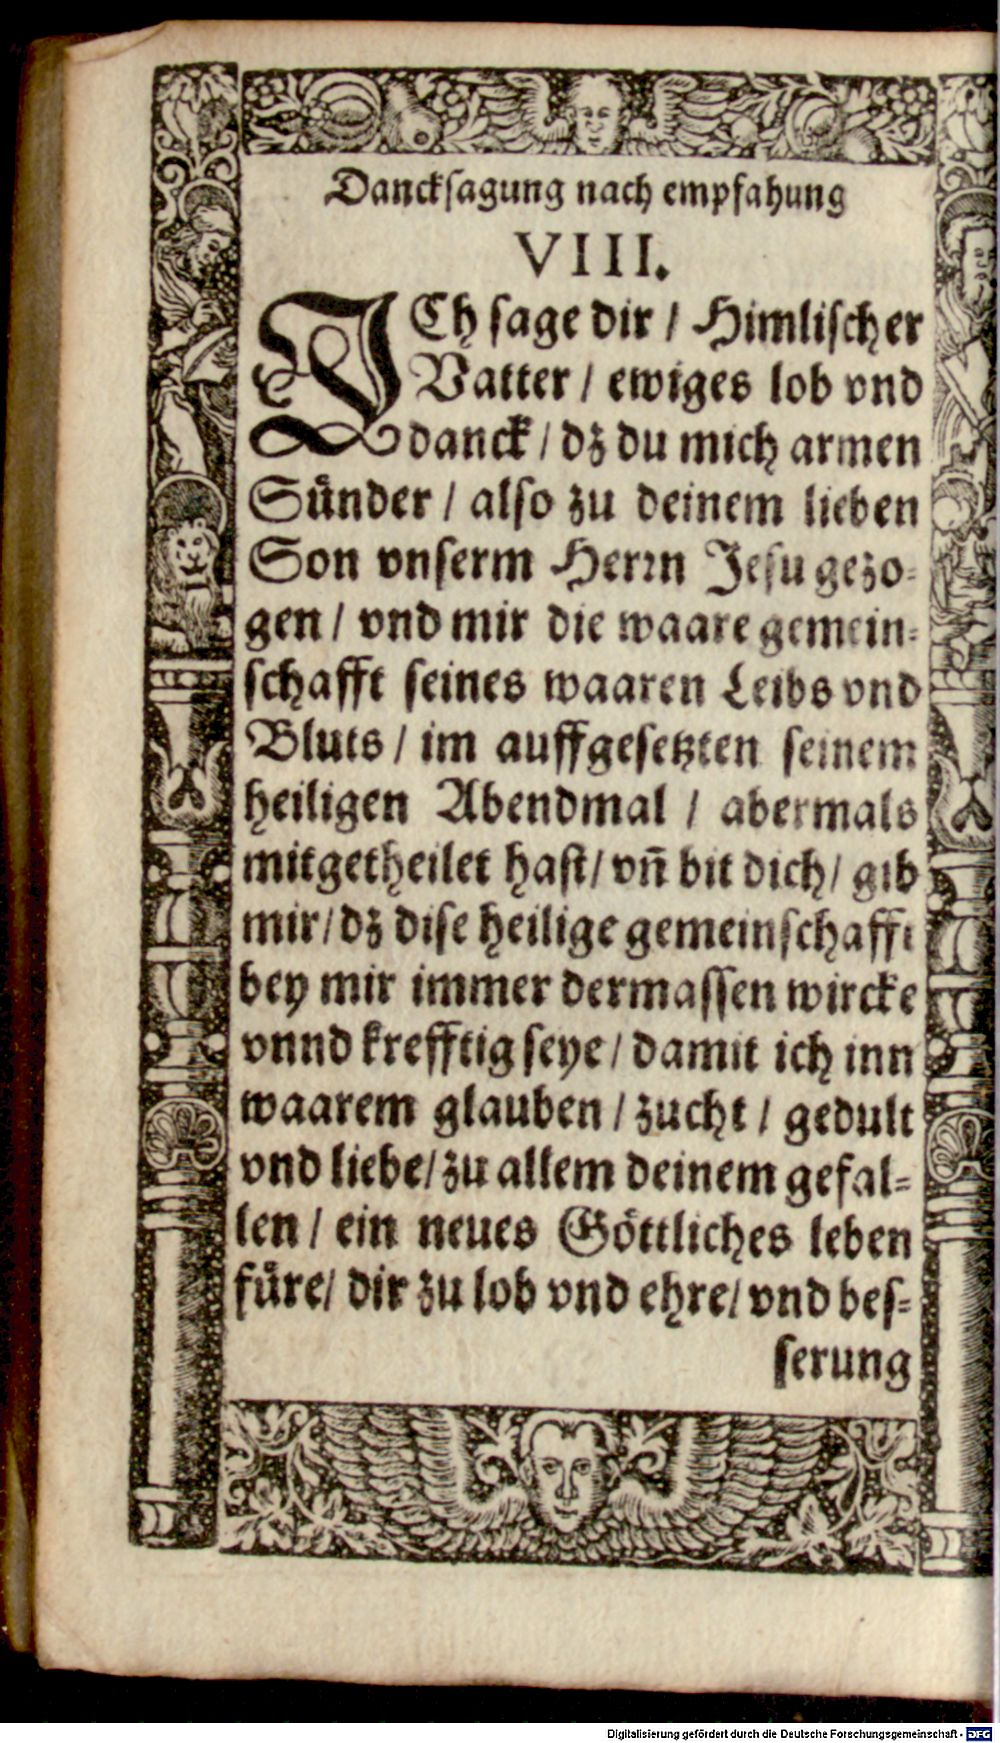 Dancksagung nach empfahung
VIII.
ICh sage dir / Himlischer
Vatter / ewiges lob vnd
danck / dz du mich armen
Sünder / also zu deinem lieben
Son vnserm Herrn Jesu gezo-
gen / vnd mir die waare gemein-
schafft seines waaren Leibs vnd
Bluts / im auffgesetzten seinem
heiligen Abendmal / abermals
mitgetheilet hast / vñ bit dich / gib
mir / dz dise heilige gemeinschafft
bey mir immer dermassen wircke
vnnd krefftig seye / damit ich inn
waarem glauben / zucht / gedult
vnd liebe / zu allem deinem gefal-
len / ein neues Göttliches leben
füre / dir zu lob vnd ehre / vnd bes-
serung
Digitalisierung gefördert durch die Deutsche Forschungsgemeinschaft - DFG